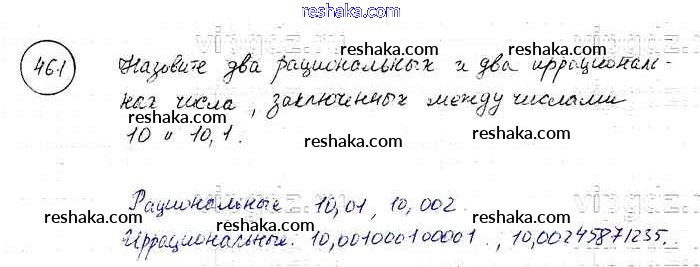 reshaka.com
461
Назовите два рациональных и два иррациональ-
ных числа, заключенных между числами
10 и 10,1.
reshaka.com reshaka.com reshaka.com
reshaka.com reshaka.com
reshaka.com reshaka.com
Рациональные: 10,01, 10,002.
Иррациональные: 10,001000100001.., 10,00245871235..
reshaka.com reshaka.com reshaka.com